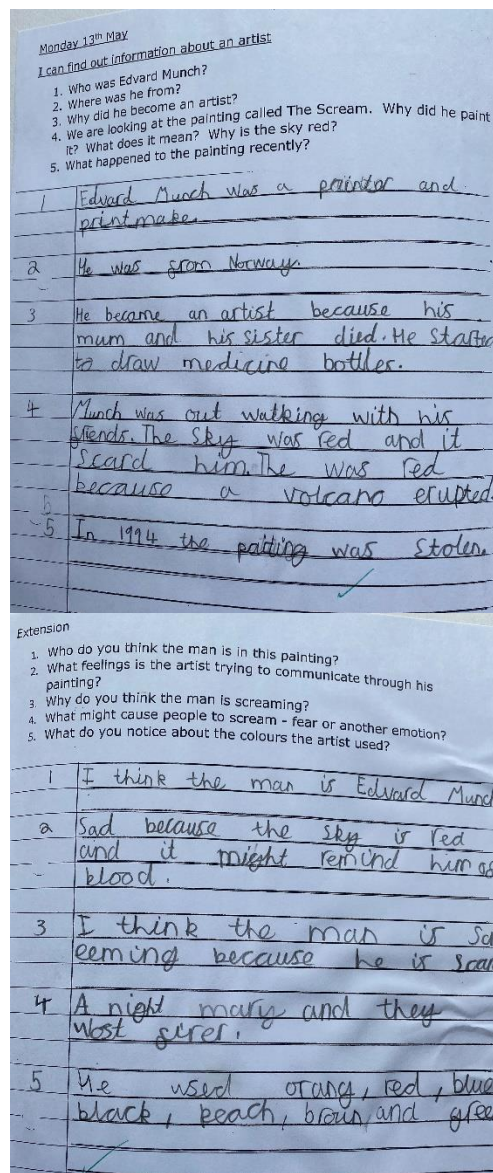 Monday 13th May
I can find out information about an artist
1. Who was Edvard Munch?
2. Where was he from?
3. Why did he become an artist?
4. We are looking at the painting called The Scream. Why did he paint
it? What does it mean? Why is the sky red?
5. What happened to the painting recently?
1 Edvard Munch was a painter and
printmake.
2 He was from Norway.
3 He became an artist because his
mum and his sister died. He started
to draw medicine bottles.
4 Munch was out walking with his
friends. The sky was red and it
scard him. The was red
because a volcano erupted
5
5 In 1994 the paiting was stolen.
Extension
1. Who do you think the man is in this painting?
2. What feelings is the artist trying to communicate through his
painting?
3. Why do you think the man is screaming?
4. What might cause people to scream - fear or another emotion?
5. What do you notice about the colours the artist used?
1 I think the man is Edvard Munc
2 Sad because the sky is red
and it might remind him of
blood.
3 I think the man is sc
eeming because he is scar
4 A night mary and they
wost screr.
5 He used orang, red, blue
black, peach, broun, and gree